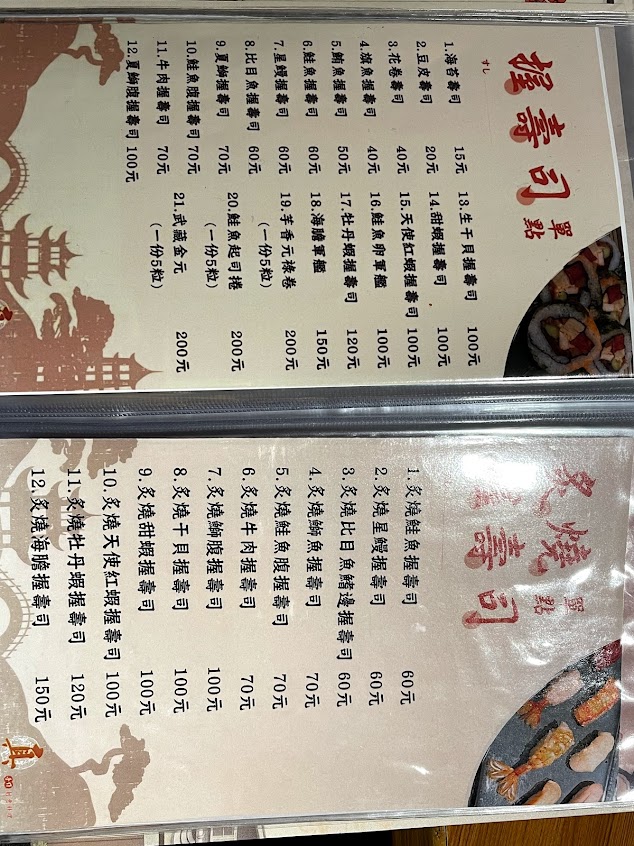 握壽司
すし
單點
1.海苔壽司 15元
2.豆皮壽司 20元
3.花卷壽司 40元
4.旗魚握壽司 40元
5.鮪魚握壽司 50元
6.鮭魚握壽司 60元
7.星鰻握壽司 60元
8.比目魚握壽司 60元
9.夏鰤握壽司 70元
10.鮭魚腹握壽司 70元
11.牛肉握壽司 70元
12.夏鰤腹握壽司 100元
13.生干貝握壽司 100元
14.甜蝦握壽司 100元
15.天使紅蝦握壽司 100元
16.鮭魚卵軍艦 100元
17.牡丹蝦握壽司 120元
18.海膽軍艦 150元
19.芋香元祿卷 200元
(一份5粒)
20.鮭魚起司捲 200元
(一份5粒)
21.武藏金元 200元
(一份5粒)
炙燒壽司
單點
1.炙燒鮭魚握壽司 60元
2.炙燒星鰻握壽司 60元
3.炙燒比目魚鰭邊握壽司 60元
4.炙燒鰤魚握壽司 70元
5.炙燒鮭魚腹握壽司 70元
6.炙燒牛肉握壽司 70元
7.炙燒鰤腹握壽司 100元
8.炙燒干貝握壽司 100元
9.炙燒甜蝦握壽司 100元
10.炙燒天使紅蝦握壽司 100元
11.炙燒牡丹蝦握壽司 120元
12.炙燒海膽握壽司 150元